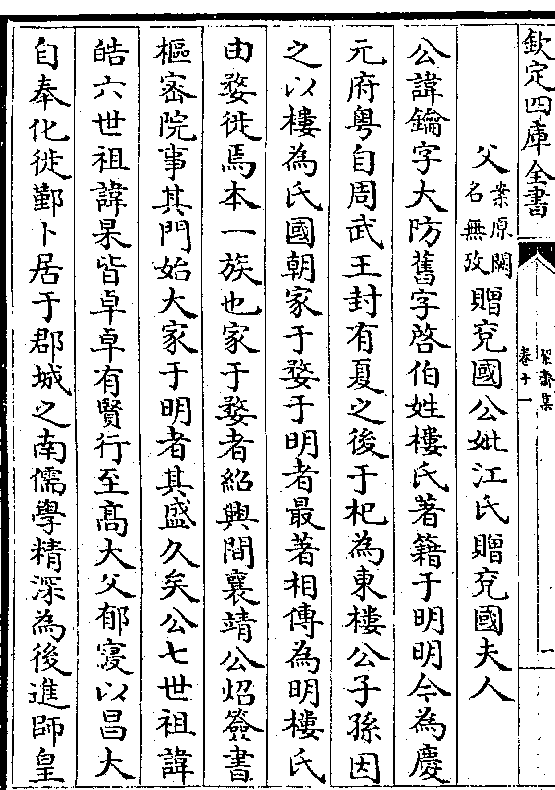 欽定四庫全書
絜齋集
卷十一
父案原闕名無攷贈兗國公妣江氏贈兗國夫人
公諱鑰字大防舊字啓伯姓樓氏著籍于明明今為慶
元府粤自周武王封有夏之後于杞為東樓公子孫因
之以樓為氏國朝家于婺于明者最著相傳為明樓氏
由婺徙焉本一族也家于婺者紹興間襄靖公炤簽書
樞密院事其門始大家于明者其盛久矣公七世祖諱
皓六世祖諱杲皆卓卓有賢行至髙大父郁寖以昌大
自奉化徙鄞卜居于郡城之南儒學精深為後進師皇